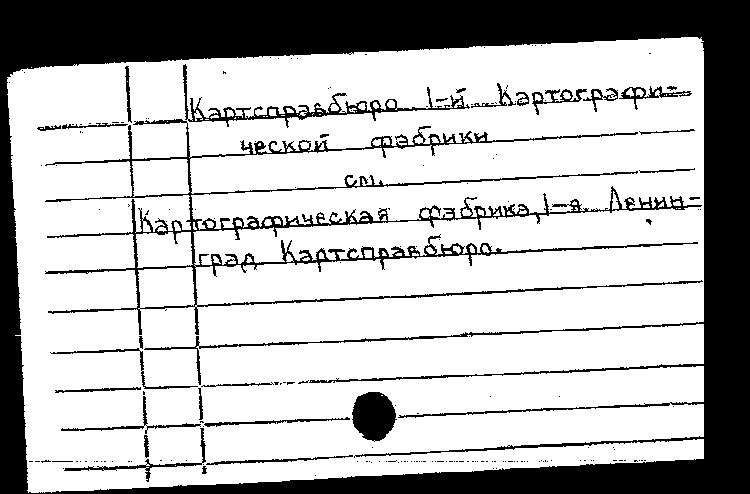 Картсправбюро 1-й Картографи-
ческой фабрики
см.
Картографическая фабрика, 1-я. Ленин-
град Картсправбюро.